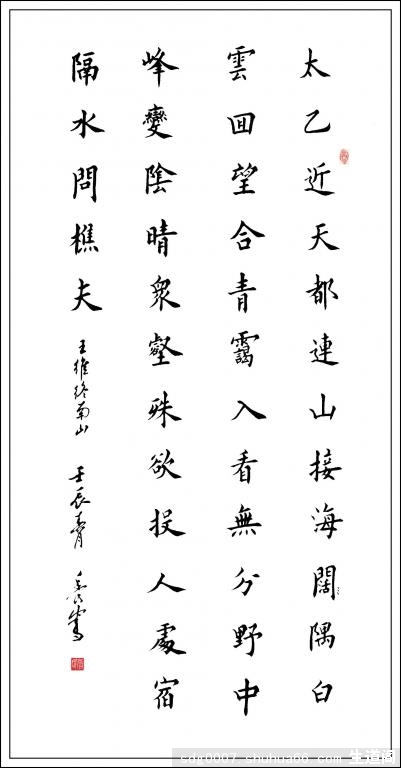 太乙近天都連山接海闊隅白
雲回望合青靄入看無分野中
峰變陰晴衆壑殊欲投人處宿
隔水問樵夫
王維終南山 壬辰
sdq0007.shuhua66.com 生道阁